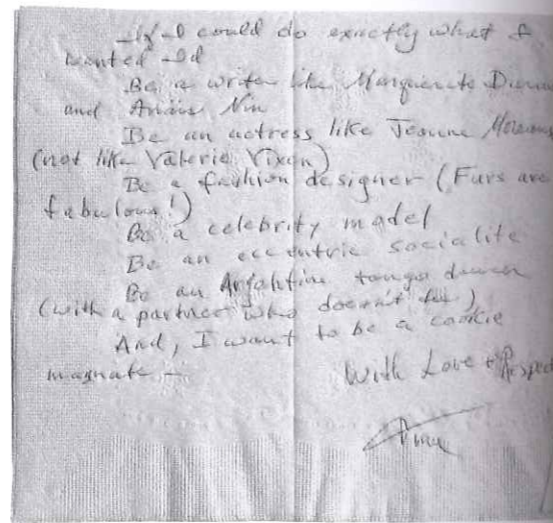 If I could do exactly what I
wanted I'd
Be a writer like Marguerite Duras
and Anaïs Nin
Be an actress like Jeanne Moreau
(not like Valerie Vixen)
Be a fashion designer (Furs are
fabulous!)
Be a celebrity model
Be an eccentric socialite
Be an Argentine tango dancer
(with a partner who doesn't)
And, I want to be a cookie
magnate –
With Love & Respect